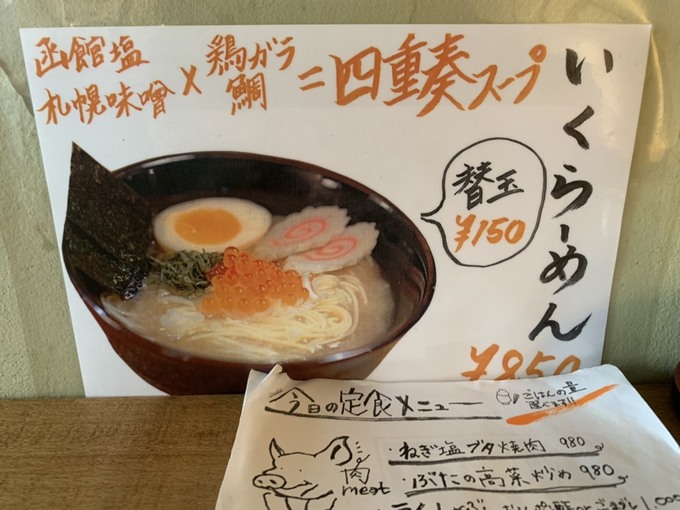 函館塩
札幌味噌
×
鶏ガラ
鯛
=四重奏スープ
いくらーめん
替玉
¥150
¥850
今日の定食メニュー
ごはんの量
選べます!!
肉
meat
・ねぎ塩ブタ焼肉 980
・ぶたの高菜炒め 980